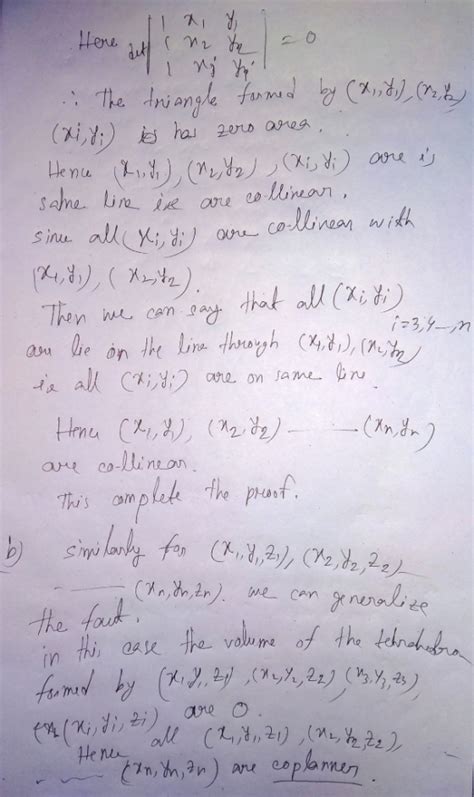 1 x1 y1
Here det 1 x2 y2 = 0
1 xi yi
∴ The triangle formed by (x1,y1), (x2,y2)
(xi,yi) is has zero area.
Hence (x1,y1), (x2,y2), (xi,yi) are is
same line i.e are co-llinear.
since all (xi,yi) are co-llinear with
(x1,y1), (x2,y2).
Then we can say that all (xi,yi)
i=3,4--,n
are lie on the line through (x1,y1), (x2,y2)
i.e all (xi,yi) are on same line.
Hence (x1,y1), (x2,y2) ------ (xn,yn)
are co-llinear.
This complete the proof.
b) similarly for (x1,y1,z1), (x2,y2,z2)
------ (xn,yn,zn). we can generalize
the fact.
in this case the volume of the tetrahedra
formed by (x1,y1,z1), (x2,y2,z2) (x3,y3,z3),
(xi,yi,zi) are 0.
Hence all (x1,y1,z1), (x2,y2,z2),
------ (xn,yn,zn) are coplanner.